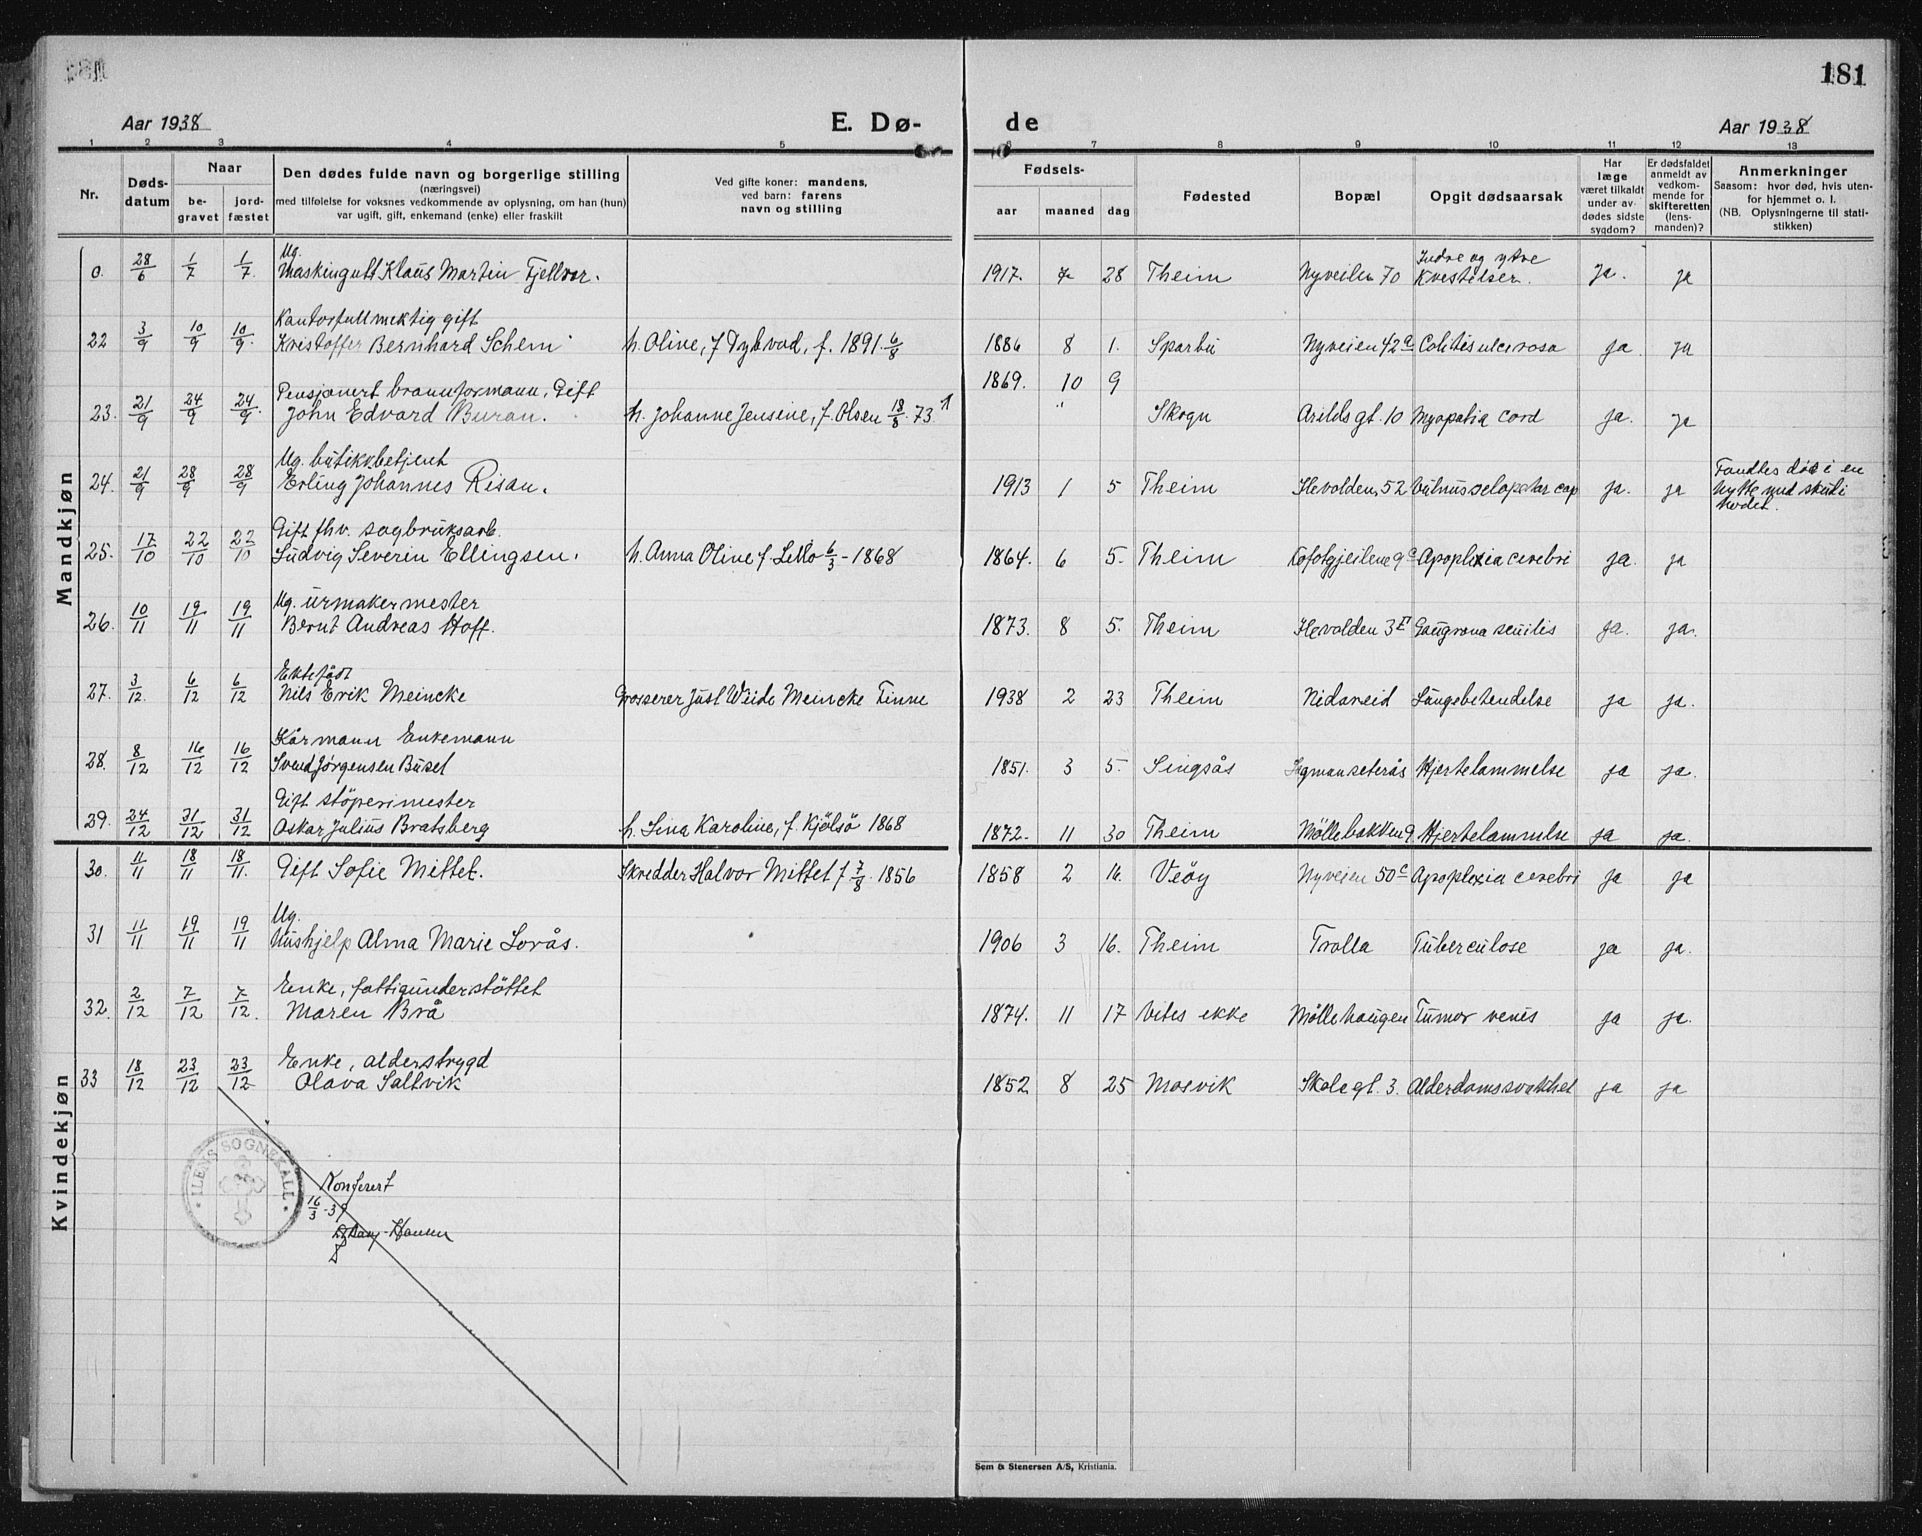 181
Aar 1938
E. Dø-
de
Aar 1938
1 2 3 4 5 6 7 8 9 10 11 12 13
Nr.
Døds-
datum
Naar
be-
gravet
jord-
fæstet
Den dødes fulde navn og borgerlige stilling
(næringsvei)
med tilføielse for voksnes vedkommende av oplysning, om han (hun)
var ugift, gift, enkemand (enke) eller fraskilt
Ved gifte koner: mandens,
ved barn: farens
navn og stilling
Fødsels-
aar maaned dag
Fødested
Bopæl
Opgit dødsaarsak
Har
læge
været tilkaldt
under av-
dødes sidste
sygdom?
Er dødsfaldet
anmeldt av
vedkom-
mende for
skifteretten
(lens-
manden)?
Anmerkninger
Saasom: hvor død, hvis uten-
for hjemmet o. l.
(NB. Oplysningerne til stati-
stikken)
Mandkjøn
Ug. Indre og ytre
0. 28/6 1/7 1/7 Maskingutt Klaus Martin Fjellvær. 1917. 7 28 Theim Nyveilen 70 Kvestelser. Ja. ja
Kontorfullmektig gift
22 3/9 10/9 10/9 Kristoffer Bernhard Schem h. Oline, f Dybvad, f. 1891 6/8 1886 8 1. Sparbu Nyveien 42a Colitis ulcerosa ja. ja
Pensjonert brannformann, Gift 1869. 10 9
23. 21/9 24/9 24/9 John Edvard Buran. h. Johanne Jensine, f. Olsen 18/8 73 " Skogn Arildsgt. 10 Myopatia cord ja. ja
Ug. butikkbetjent Fandtes død i en
24. 21/9 28/9 28/9 Erling Johannes Risan. 1913 1 5 Theim Hevolden, 52 Vulnus sclopetar cap ja. ja hytte med skud i
hodet.
Gift fhv. sagbruksarb.
25. 17/10 22/10 22/10 Ludvig Severin Ellingsen. h. Anna Oline f. 6/3-1868 1864. 6 5. Theim 9c Apoplexia cerebri ja. ja
Ug. urmakermester
26. 10/11 19/11 19/11 Bernt Andreas Hoff. 1873. 8 5. Theim Hevolden 3 Gangrana senilis ja. ja.
Ektefødt
27. 3/12. 6/12 6/12 Nils Erik Meincke Grosserer Just Wiide Meincke Finne 1938 2 23 Theim Nidareid Lungebetendelse ja ja.
Kårmann Enkemann
28. 8/12 16/12 16/12 Svend Jørgensen Buset 1851. 3 5. Singsås Hjertelammelse ja ja.
Gift støperimester
29. 24/12 31/12 31/12 Oskar Julius Bratsberg h. Lina Karoline, f. Kjølsø 1868 1872. 11 30 Theim Møllebakken 9. Hjertelammelse ja ja.
Kvindekjøn
30. 11/11 18/11 18/11. Gift Sofie Mittet. Skredder Halvor Mittet f 7/8. 1856 1858 2 16. Veøy Nyveien 50c Apoplexia cerebri ja ja
Ug.
31 11/11 19/11 19/11 Hushjelp Alma Marie Lorås. 1906 3 16. Theim Trolla Tuberculose ja ja.
Enke, fattigunderstøttet
32. 2/12 7/12 7/12. Maren Brå 1874. 11 17 Vites ekke Møllehaugen Tumor venis ja ja.
Enke, alderstrygd
33 18/12 23/12 23/12 Olava Saltvik 1852 8 25 Mosvik Skolegt. 3. Alderdomssvakhet ja ja
ILENS SOGNEKALL
Konferert
16/3-39
Sem & Stenersen A/S, Kristiania.